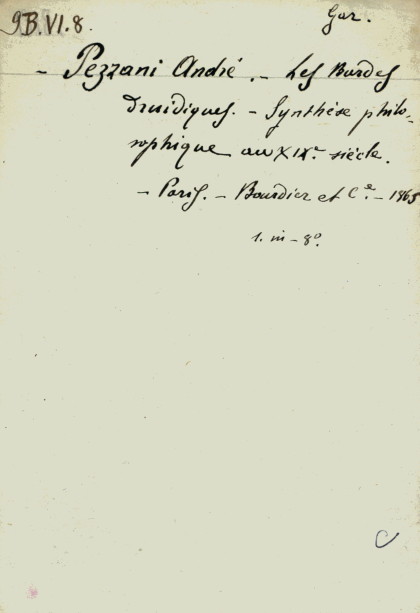 9B.VI.8.
Gar.
- Pezzani André. - Les Bardes
Druidiques. - Synthèse philo-
sophique au XIXe siècle.
- Paris. - Bourdier et Cie. - 1865
1. in - 8°.